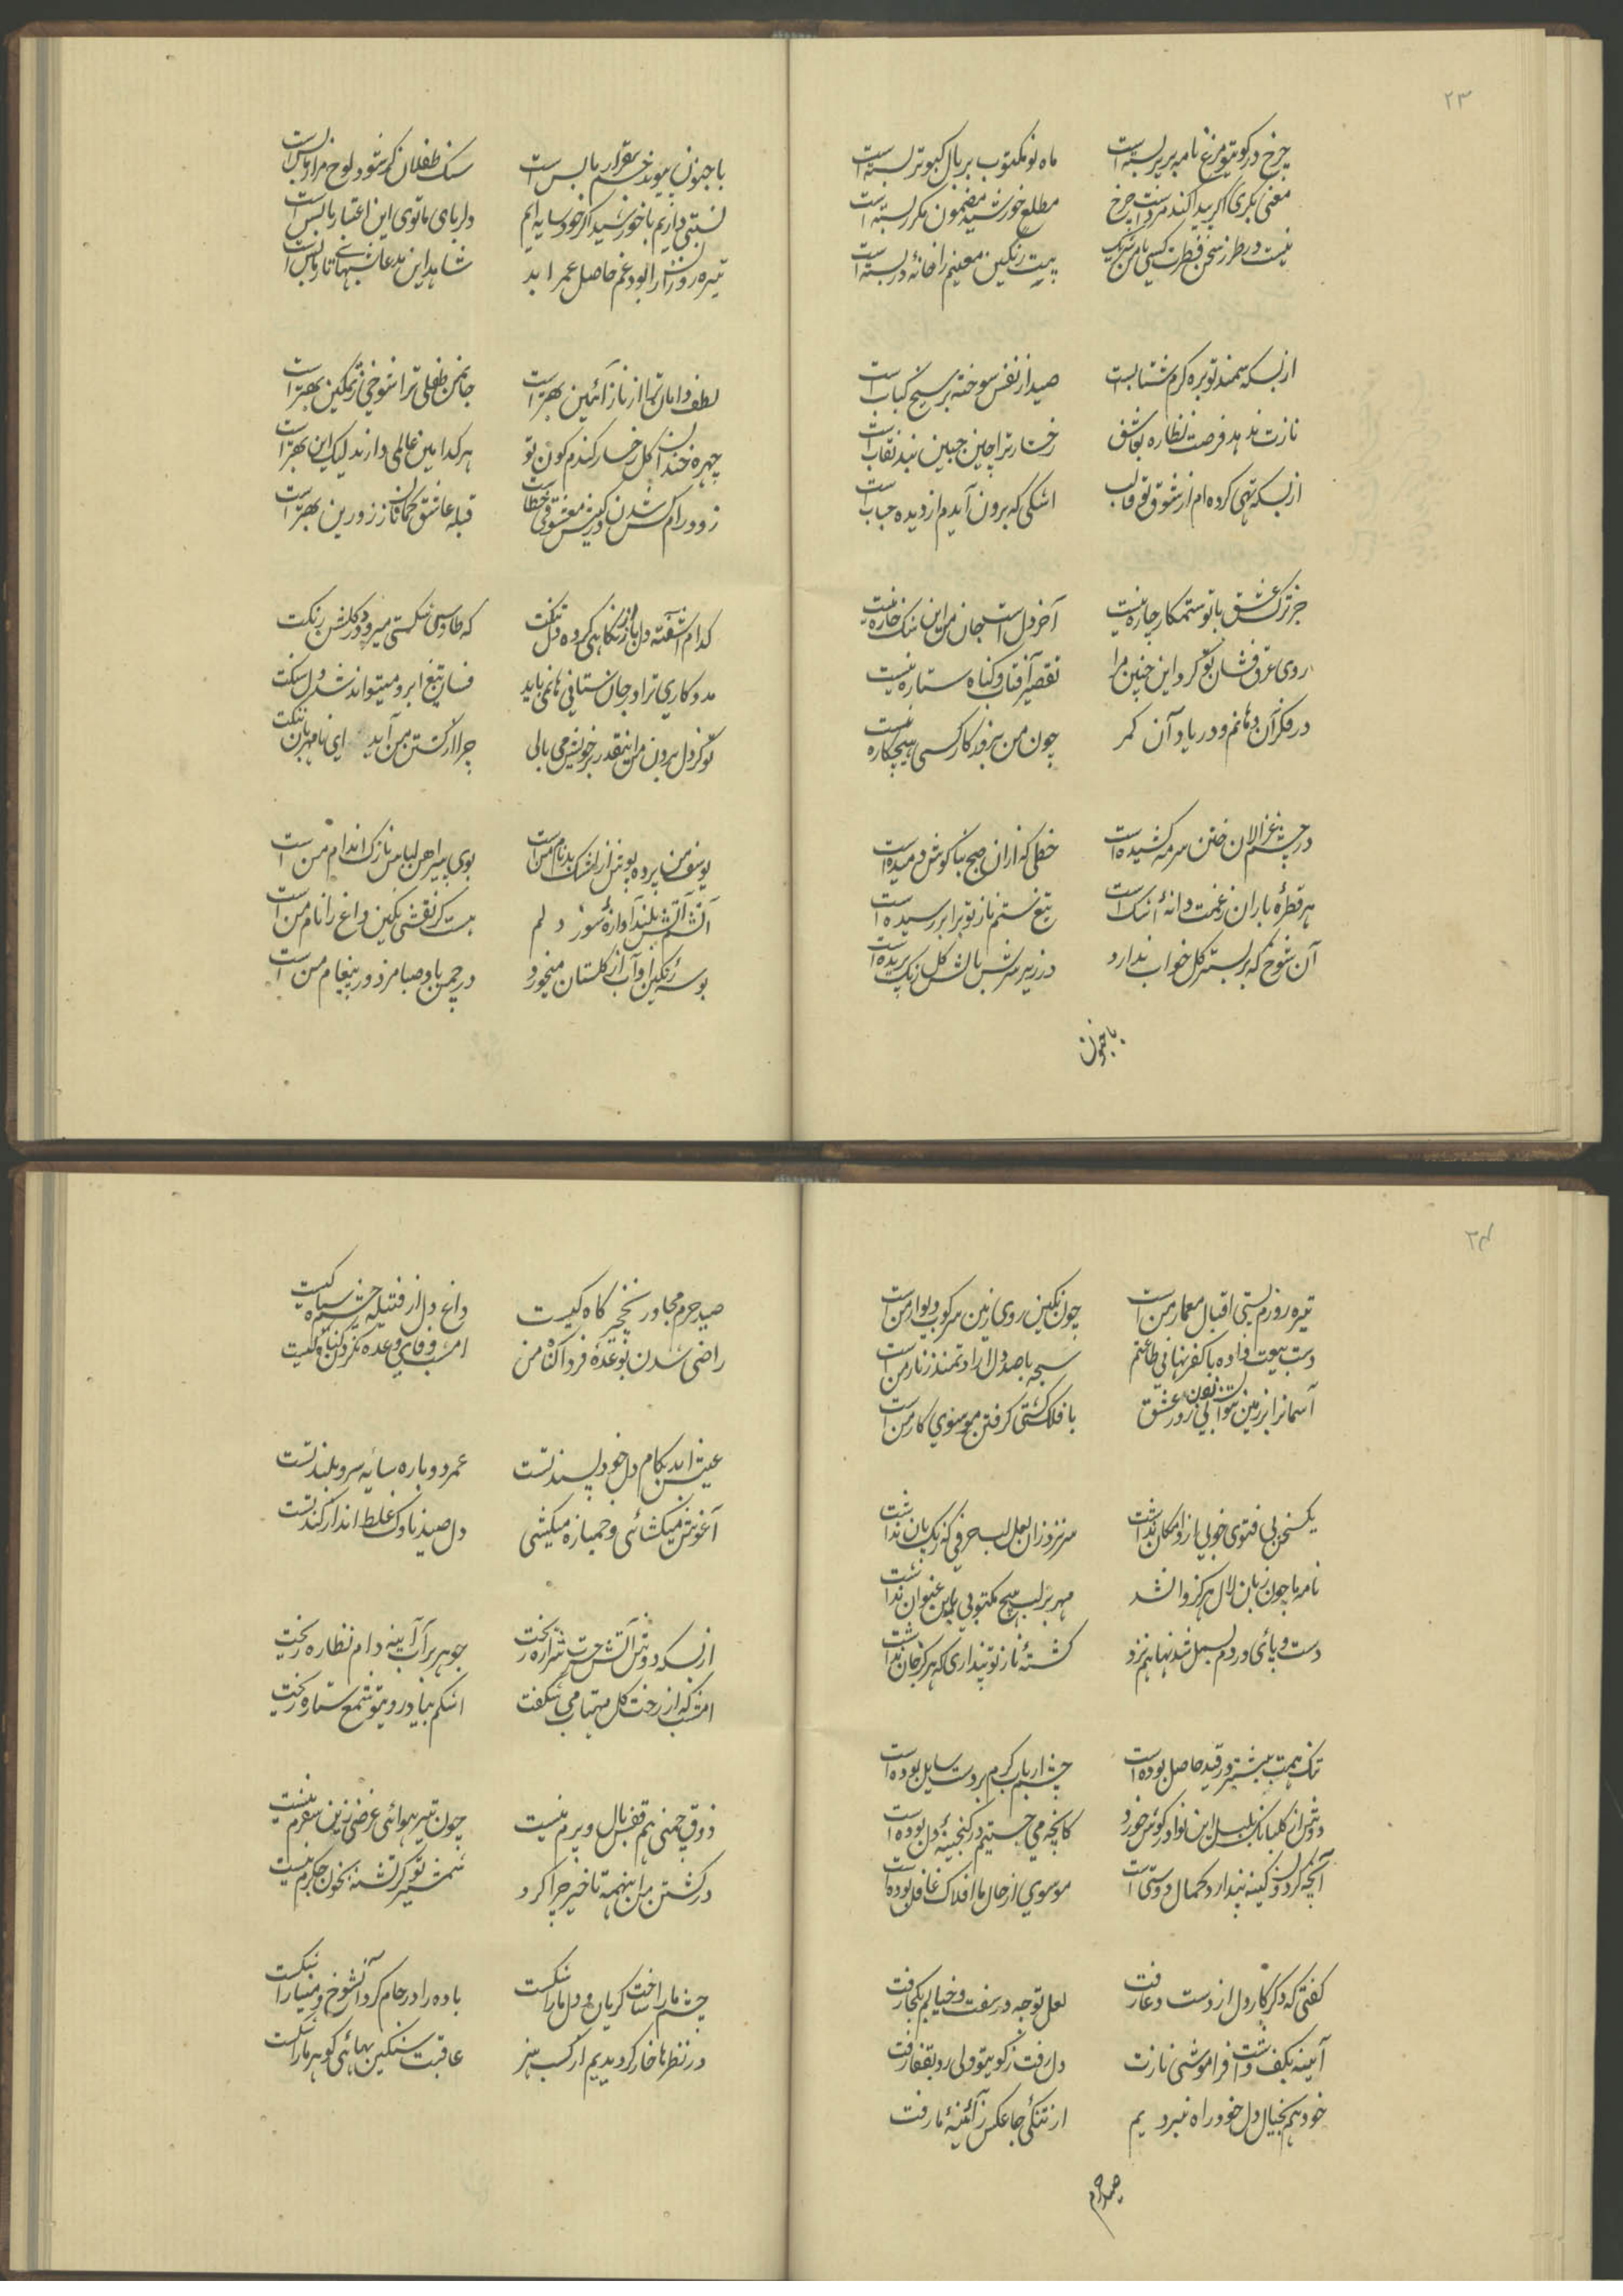 ۲۳
چرخ در کویتو مرغ نامه بر پر بسته است
ماه نو مکتوب بر بال کبوتر بسته است
معنی بکری اگر پیدا کند مرد است چرخ
مطلع خورشید مضمون مکرر بسته است
نیست در طرز سخن فطرت کسی با من شریک
بیت رنگین معنیم را خانهٔ در بسته است
از بسکه سمند تو بره گرم شتابست
صید از نفس سوخته بر سیخ کباب است
نازت ندهد فرصت نظاره بعاشق
رخسار ترا چین جبین بند نقاب است
از بسکه تهی کرده ام از شوق تو قالب
اشکی که برون آیدم از دیده حباب است
جز ترک عشق با تو ستمکار چاره نیست
آخر دل است جان من این سنگ خاره نیست
روی عرق فشان تو کرد این چنین مرا
تقصیر آفتاب و گناه ستاره نیست
در فکر آن دهانم و در یاد آن کمر
چون من بروزگار کسی هیچکاره نیست
در چشم غزالان ختن سرمه کشیده است
خطی که ازان صبح بناگوش دمیده است
هر قطرهٔ باران ز غمت دانهٔ اشک است
تیغ ستم ناز تو بر ابر رسیده است
آن شوخ که بر بستر گل خواب ندارد
در زیر سرش بالش گل رنگ پریده است
با جنون
با جنون پیوند خشم بیقرار ما بس است
سنگ طفلان گر شود لوح مزار ما بس است
نسبتی داریم با خورشید اگر خود سایه ایم
دلربای ما توی این اعتبار ما بس است
تیره روزان را بود غم حاصل عمر ابد
شاهد این مدعا شبهای تار ما بس است
لطف دامان ترا از ناز آئین بهتر است
جان من طفلی ترا شوخی ز تمکین بهتر است
چهره خندان گل رخسار گندم گون تو
هر کدامین عالمی دارند لیک این بهتر است
زود رام کس شدن در کیش معشوقی خطاست
قبله عاشق کمان ناز زورین بهتر است
کدام آشفته دل یارب نگاهی کرده دلتنگت
که طاوسی شکستی میرود در گلشن رنگت
مددکاری ترا در جان ستانی ها نمی باید
فسان تیغ ابرو میتواند شد دل سنگت
تو کز دل بردن من اینقدر بر خویش می بالی
چرا از کشتن من آید ای نامهربان ننگت
یوسف من پرده پوش از اشک بدنام من است
بوی پیراهن لباس نازک اندام من است
آتشم آتش بلند آوازهٔ سوز دلم
هست گر نقشی نگین داغ را نام من است
بوسه رنگین او آب از گلستان میخورد
در چمن باد صبا مزدور پیغام من است
۲۴
تیره روزم پستی اقبال معمار من است
چون نگین روی زمین سرکوب دیوار من است
دست بیعت داده با کفر نهانی طاعتم
سبحه با صد دل ارادتمند زنار من است
آسمانرا بر زمین نتوان زدن بی زور عشق
با فلک کشتی گرفتن موسوی کار من است
یکسخن بی فتوی خوبی ازو امکان نداشت
سر نزد زان لعل لب حرفی که رنگ پان نداشت
نامه ما چون زبان لال هرگز وا نشد
مهر بر لب هیچ مکتوبی باین عنوان نداشت
دست و پائی در دم بسمل شدنها هم نزد
کشتهٔ ناز تو پنداری که هرگز جان نداشت
تنک همت بیشتر در قید حاصل بوده است
چشم ارباب کرم بر دست سایل بوده است
دوش از گلبانگ بلبل این نوا در گوش خورد
کانچه می جستیم در گنجینهٔ دل بوده است
آنچه گردون کینه پندارد کمال دوستی است
موسوی از حال ما افلاک غافل بوده است
گفتی که دگر کار دل از دست دعا رفت
لعل توجه در سفت و خیالم بکجا رفت
آیینه بکف داشت فراموشی نازت
دل رفت ز کویتو ولی رو بقفا رفت
خود هم بخیال دل خود راه نبردیم
از تنگی جا عکس ز آئینهٔ ما رفت
صید حرم
صید حرم مجاور نخچیر گاه کیست
داغ دل از فتیله چشم سیاه کیست
راضی شدن بوعدهٔ فردا گناه من
امشب وفای وعده نکردن گناه کیست
عیش ابد بکام دل خود پسند تست
عمر دوباره سایه سرو بلند تست
آغوش میکشائی و خمیازه میکشی
دل صید ناوک غلط انداز کند تست
از بسکه دوش آتش حسنت شراره ریخت
جوهر بر آب آیینه دام نظاره ریخت
امشب که از رخت گل مهتاب می شکفت
اشکم بیاد رویتو شمع ستاره ریخت
ذوق چمنی هم قفس بال و پرم نیست
چون تیر هوائی غرضی زین سفرم نیست
در کشتن من اینهمه تاخیر چرا کرد
شمشیر تو گر تشنه بخون جگرم نیست
چشم ما را ساخت گریان و دل ما را شکست
باده را در جام کرد آن شوخ و مینا را شکست
در نظرها خار گردیدیم از کسب هنر
عاقبت سنگین بهائی گوهر ما را شکست